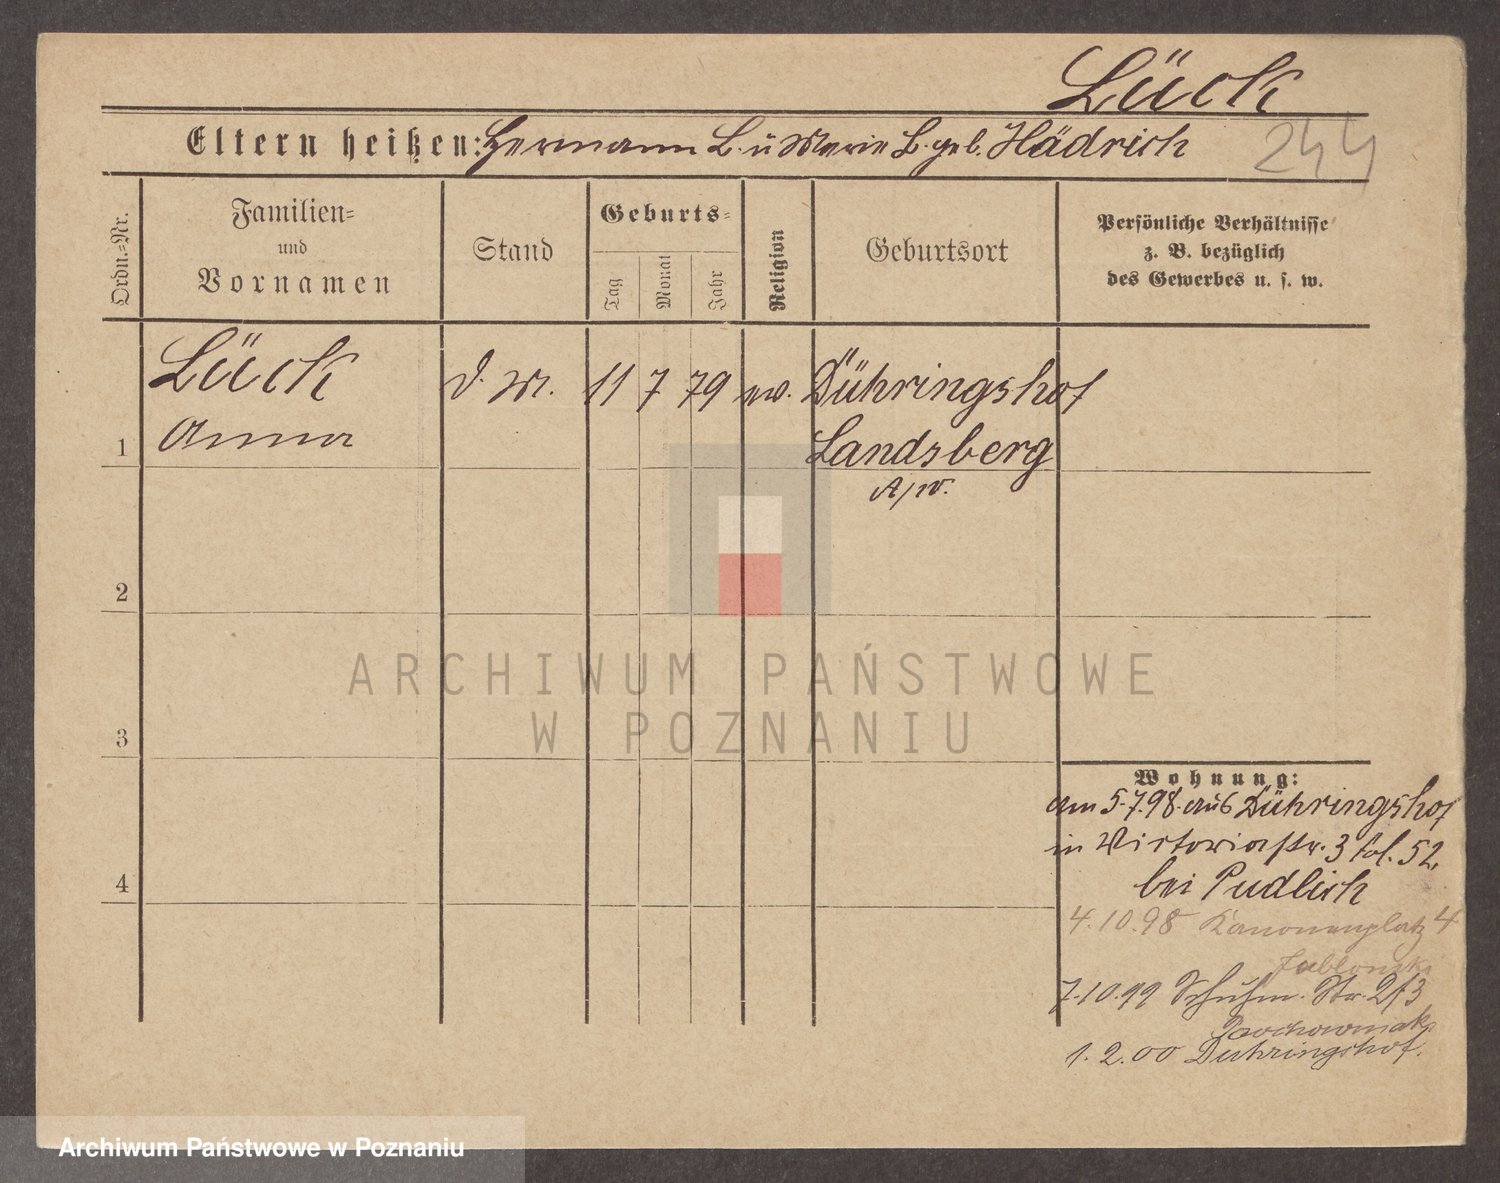 Lück
Eltern heißen: Hermann L. u Marie L. geb. Hädrich
244
Ordn.-Nr.
Familien-
und
Vornamen
Stand
Geburts-
Tag
Monat
Jahr
Religion
Geburtsort
Persönliche Verhältnisse
z. B. bezüglich
des Gewerbes u. s. w.
Lück
Anna
d. M.
11 7 79
ev.
Dühringshof
Landsberg
a/w.
1
2
3
4
ARCHIWUM PAŃSTWOWE
W POZNANIU
Wohnung:
am 5.7.98. aus Dühringshof
in Victoriastr. 3 fol. 52,
bei Pudlich
4.10.98 Kanonenplatz 4
Jablonska
7.10.99 Schuhm. Str. 2/3
1. 2. 00 Duhringshof.
Archiwum Państwowe w Poznaniu